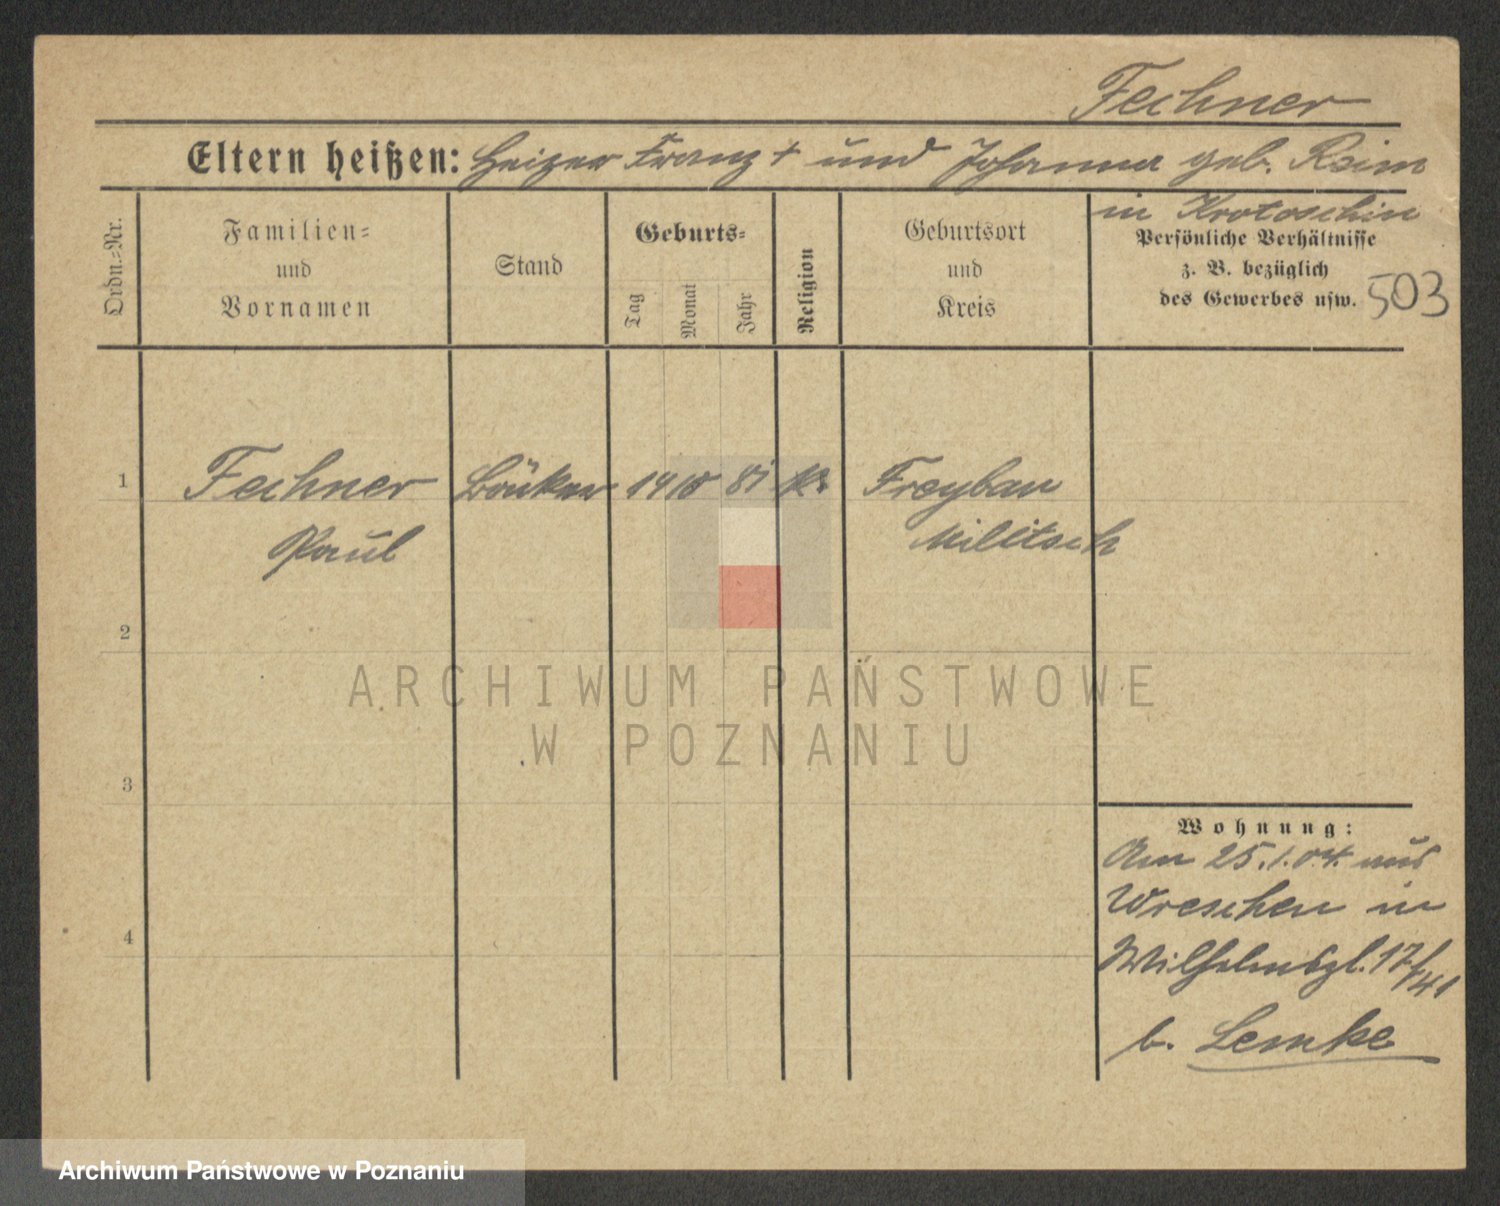 Fechner
Eltern heißen: Heizer Franz † und Johanna geb. Reim
in Krotoschin
Ordn.-Nr.
Familien-
und
Vornamen
Stand
Geburts-
Tag
Monat
Jahr
Religion
Geburtsort
und
Kreis
Persönliche Verhältnisse
z. B. bezüglich
des Gewerbes usw. 503
1 Fechner 14 10 81 Freyhan
Paul Militsch
2
3
4
Wohnung:
Am 25.1.04. aus
Wreschen in
Wilhelmspl. 17/
b. Lemke
ARCHIWUM PAŃSTWOWE
W POZNANIU
Archiwum Państwowe w Poznaniu